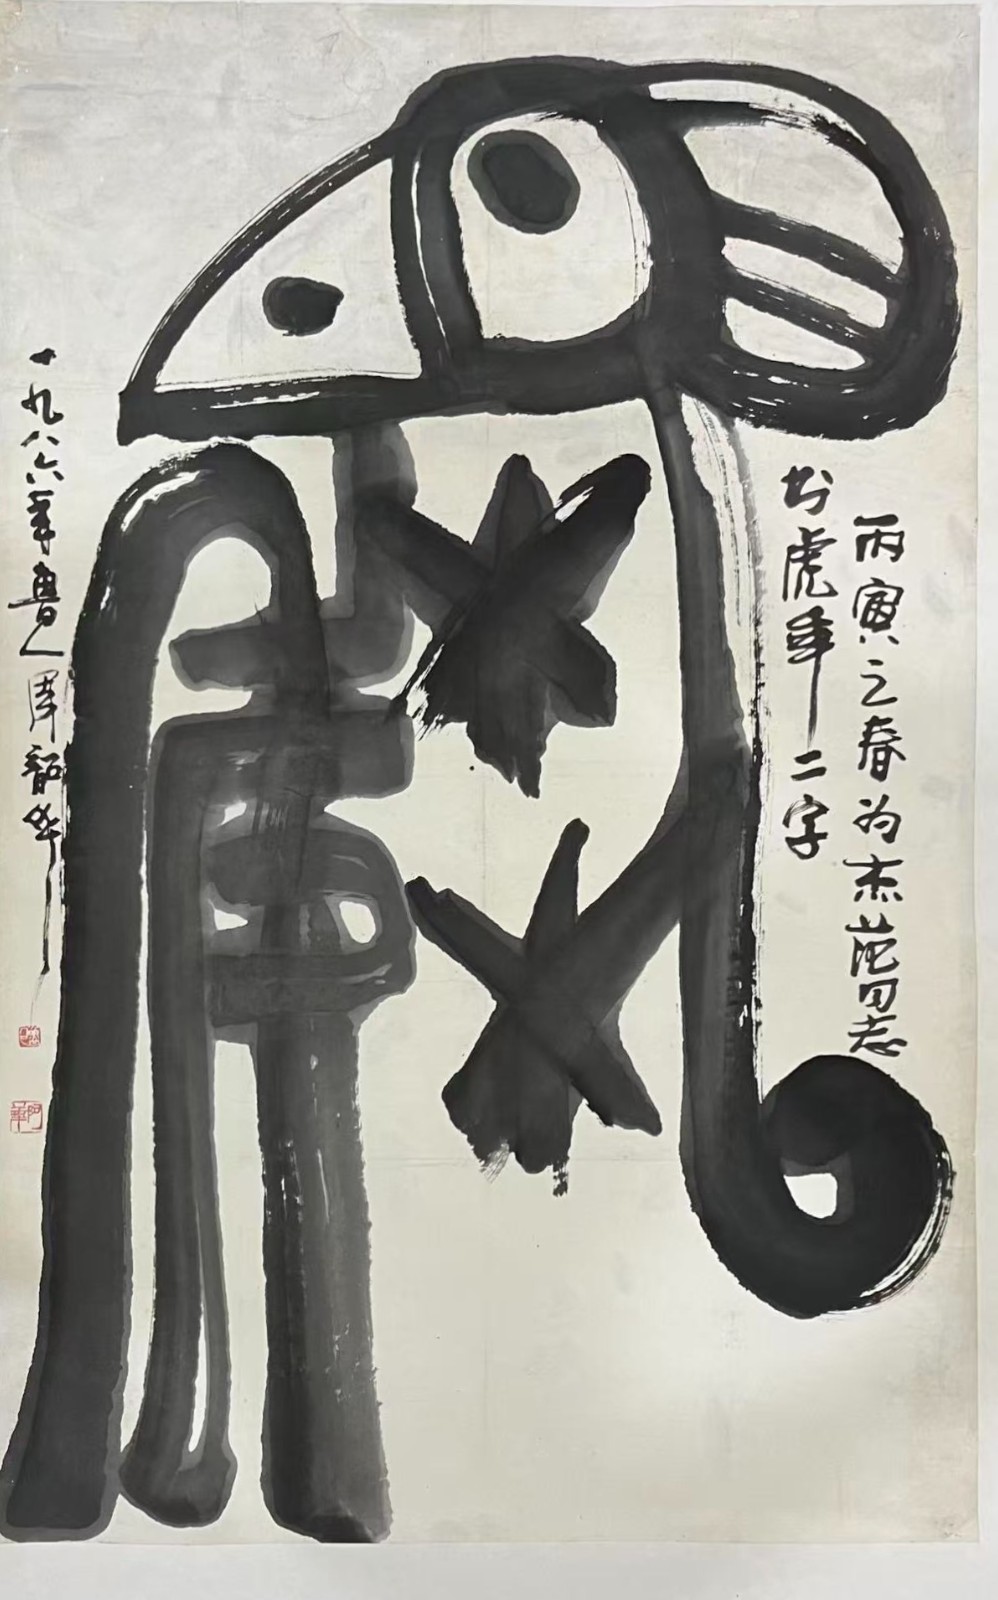 丙寅之春为杰范同志
书虎年二字
一九八六年鲁人周韶华
阿华